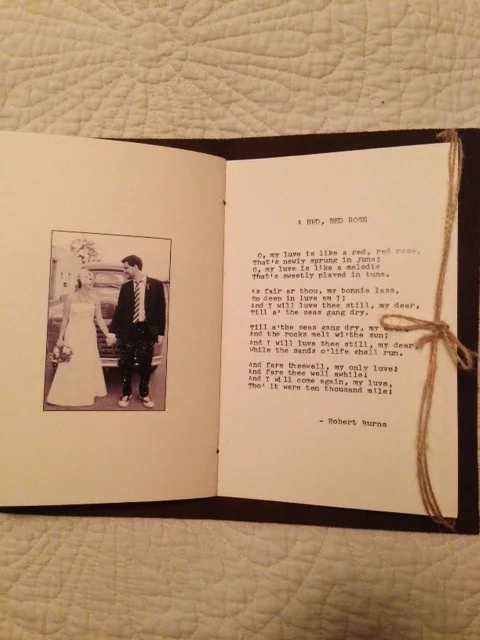 A RED, RED ROSE
O, my luve is like a red, red rose,
That's newly sprung in June;
O, my luve is like a melodie
That's sweetly played in tune.
As fair ar thou, my bonnie lass,
So deep in luve am I;
And I will luve thee still, my dear,
Till a' the seas gang dry.
Till a'the seas gang dry, my
And the rocks melt wi'the sun;
And I will luve thee still, my dear,
While the sands o'life shall run.
And fare theewell, my only luve!
And fare thee well awhile!
And I will come again, my luve,
Tho' it were ten thousand mile!
- Robert Burns